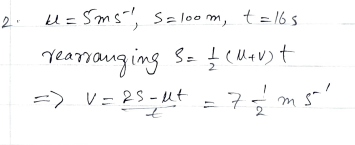 2. u = 5ms⁻¹, S = 100m, t = 16s
rearranging S = ½ (u+v) t
=> v = (2S - ut)/t = 7 ½ m s⁻¹